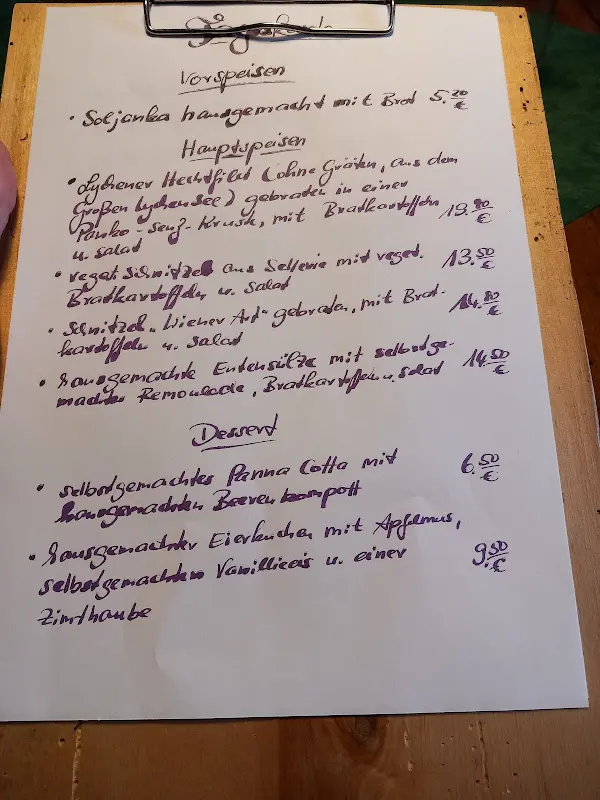 Tageskarte
Vorspeisen
• Soljanka hausgemacht mit Brot 5.20 €
Hauptspeisen
• Lychener Hechtfilet (ohne Gräten, aus dem
Großen Lychensee) gebraten in einer
Panko-Senf-Kruste, mit Bratkartoffeln 19.80 €
u. Salat
• veget. Schnitzel aus Sellerie mit veget. 13.50 €
Bratkartoffeln u. Salat
• Schnitzel „Wiener Art" gebraten, mit Brat- 14.80 €
kartoffeln u. Salat
• hausgemachte Entensülze mit selbstge- 14.50 €
machter Remoulade, Bratkartoffeln u. Salat
Dessert
• selbstgemachtes Panna Cotta mit 6.50 €
hausgemachten Beerenkompott
• hausgemachter Eierkuchen mit Apfelmus,
selbstgemachtem Vanilleeis u. einer 9.50 €
Zimthaube